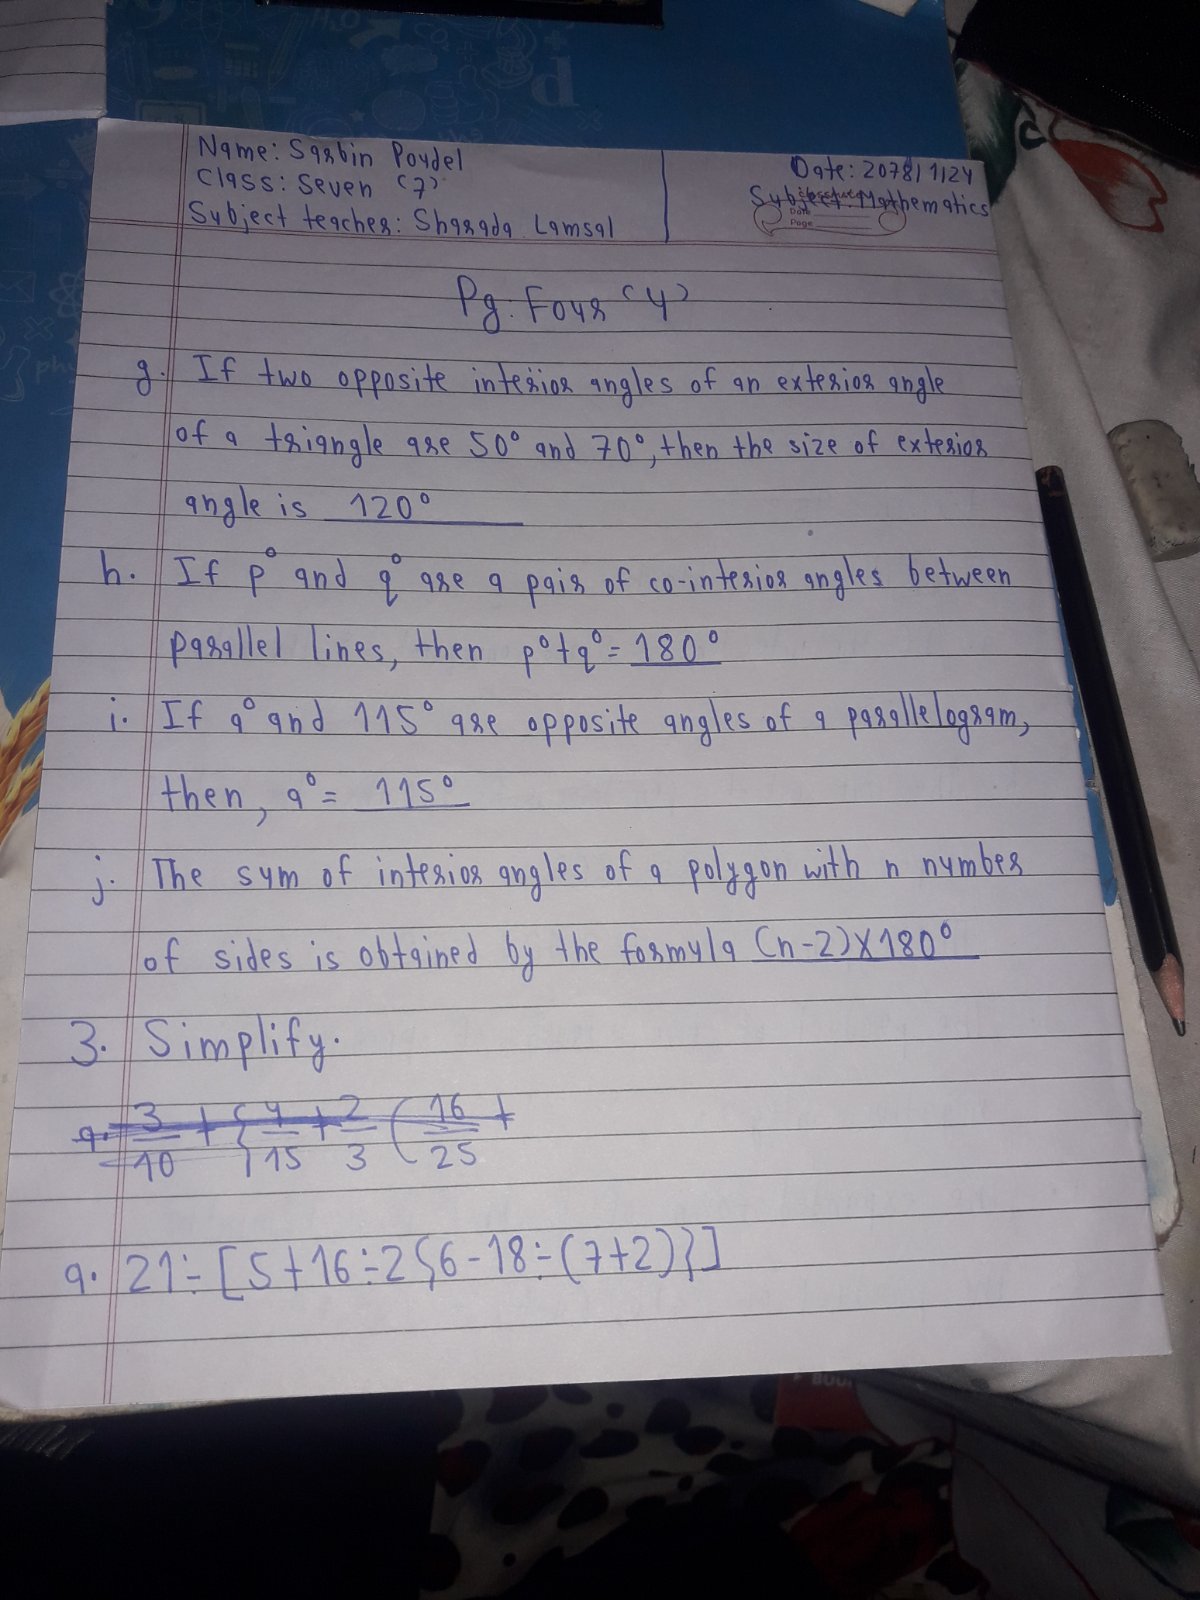 Name: Sarbin Poudel
Class: Seven (7)
Subject teacher: Sharada Lamsal
Date: 2078/1/24
Subject: Mathematics
Date
Page
Pg. Four (4)
g. If two opposite interior angles of an exterior angle
of a triangle are 50° and 70°, then the size of exterior
angle is 120°
h. If p° and q° are a pair of co-interior angles between
parallel lines, then p°+q° = 180°
i. If a° and 115° are opposite angles of a parallelogram,
then, a° = 115°
j. The sum of interior angles of a polygon with n number
of sides is obtained by the formula (n-2)×180°
3. Simplify.
a. 3/10 + { 4/15 + 2/3 ( 16/25 +
a. 21÷[5+16÷2{6-18÷(7+2)}]